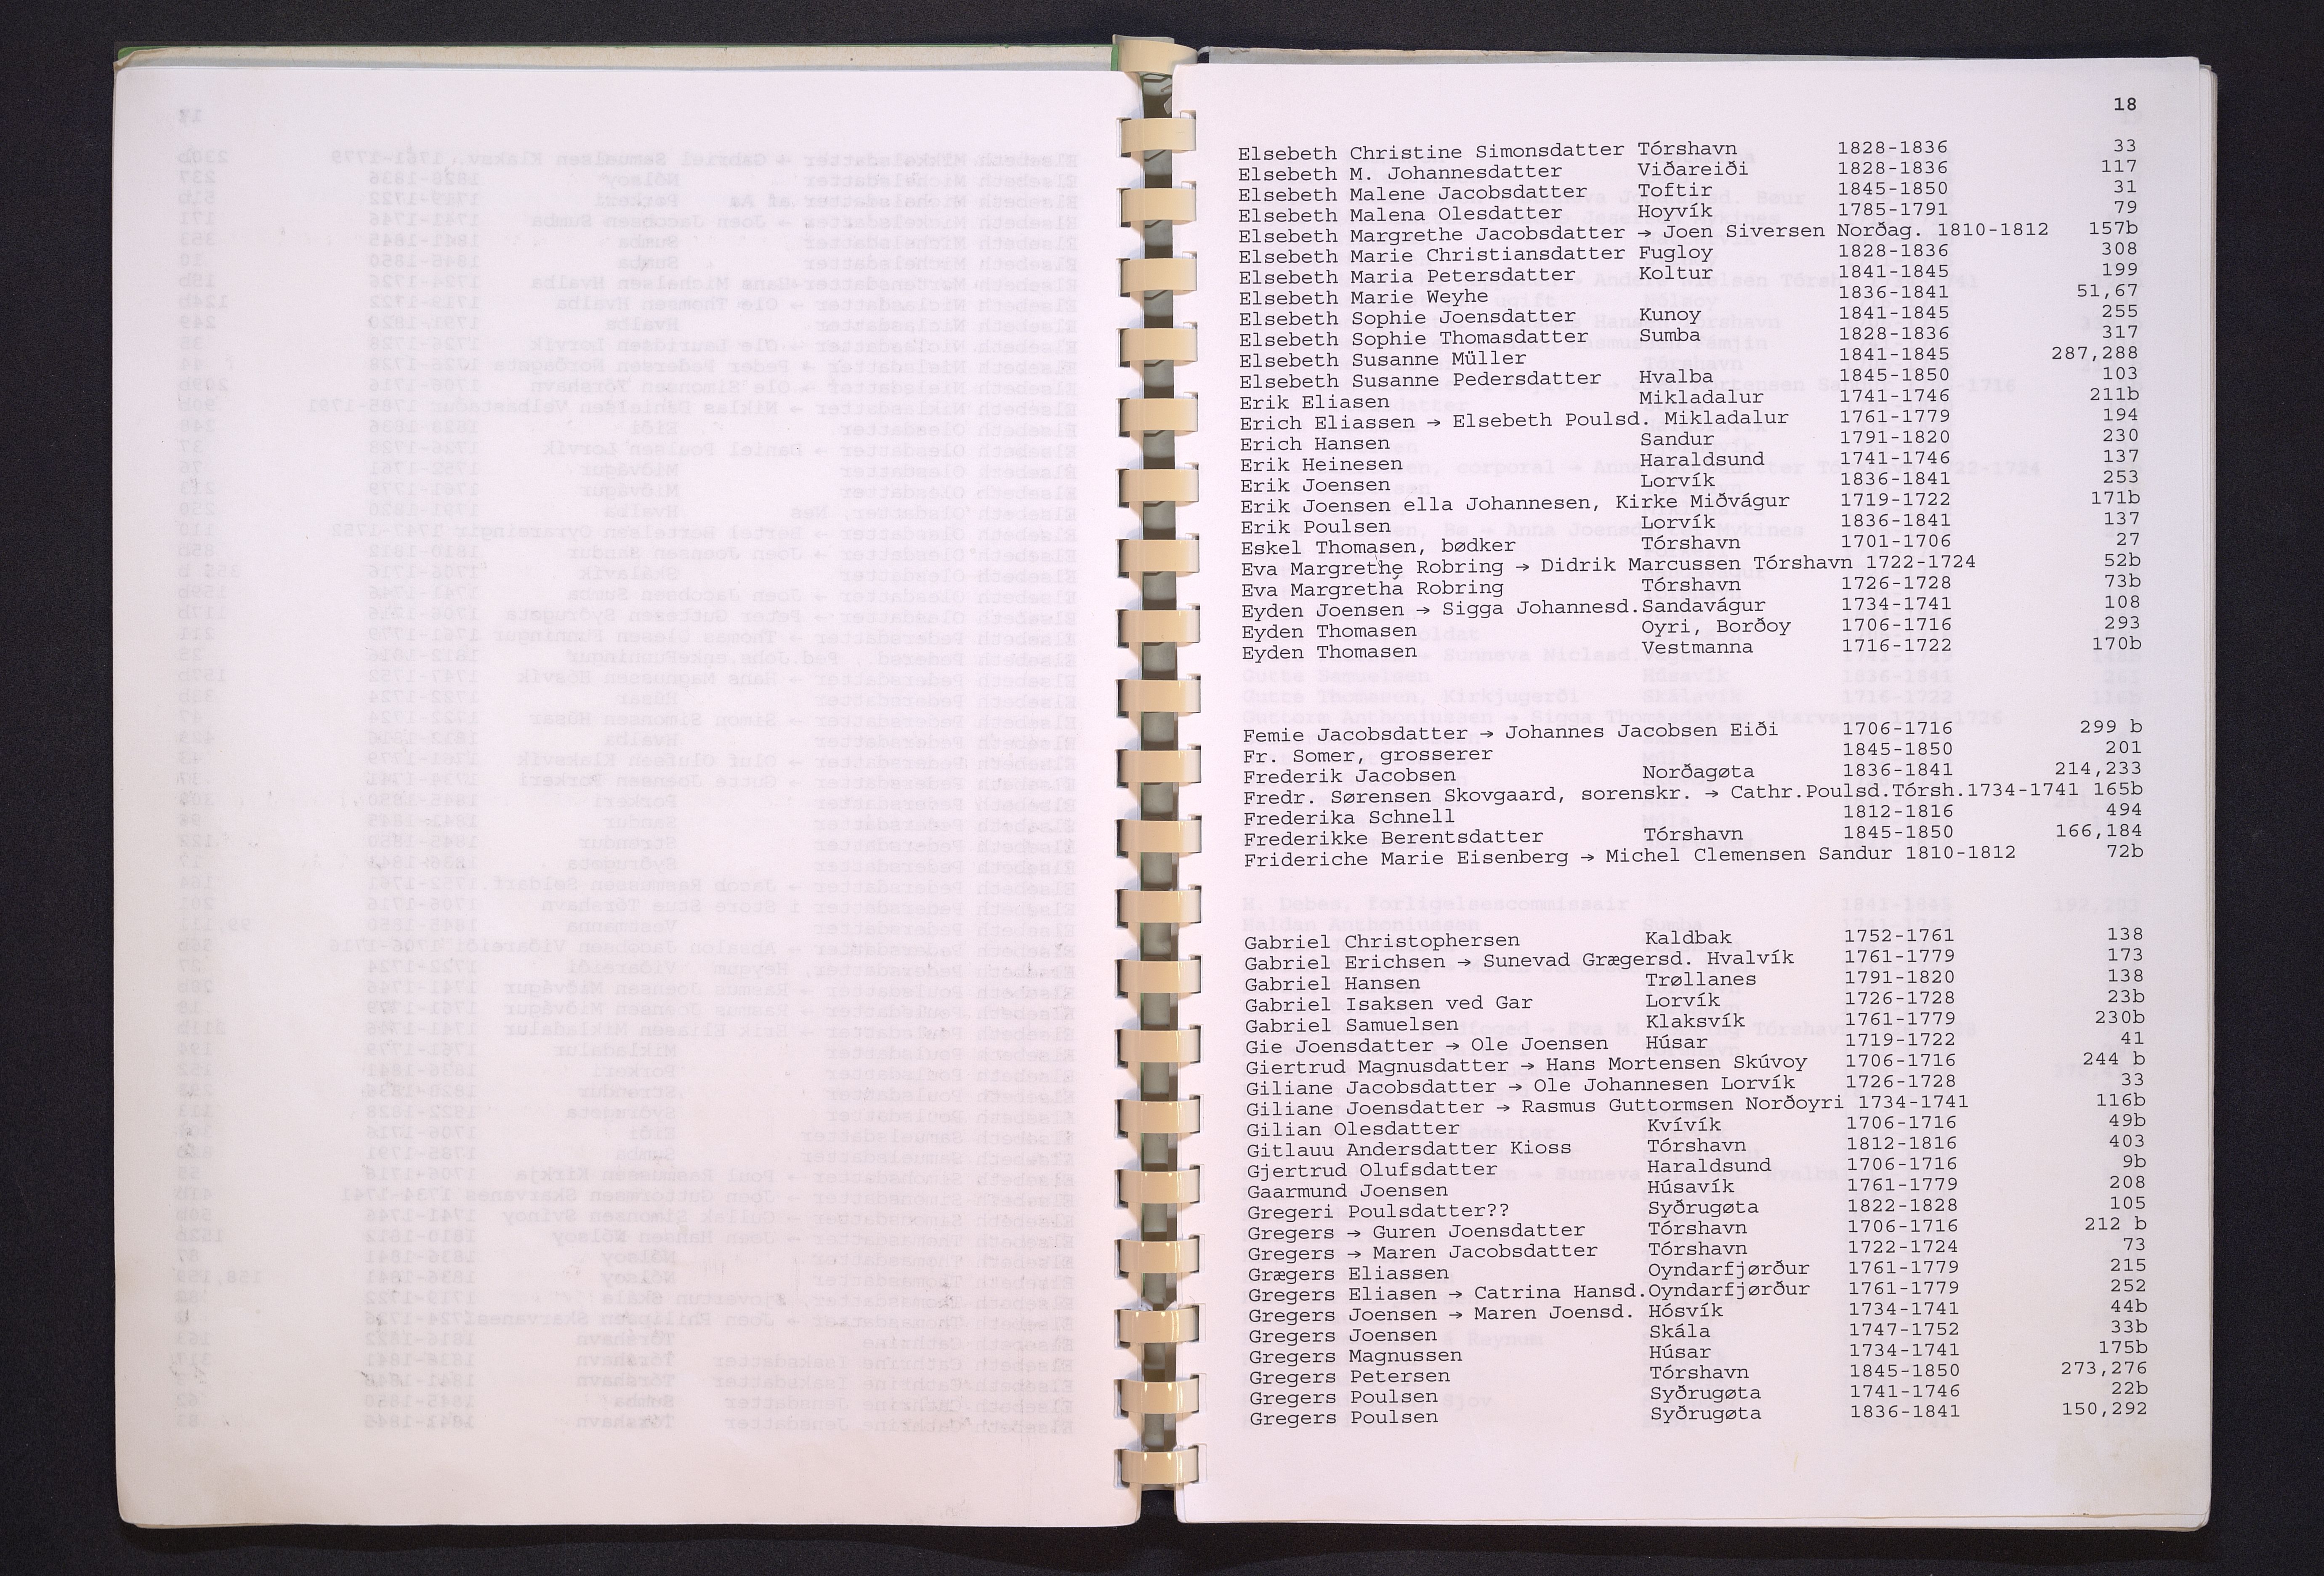 18
Elsebeth Christine Simonsdatter Tórshavn 1828-1836 33
Elsebeth M. Johannesdatter Viðareiði 1828-1836 117
Elsebeth Malene Jacobsdatter Toftir 1845-1850 31
Elsebeth Malena Olesdatter Hoyvík 1785-1791 79
Elsebeth Margrethe Jacobsdatter → Joen Siversen Norðag. 1810-1812 157b
Elsebeth Marie Christiansdatter Fugloy 1828-1836 308
Elsebeth Maria Petersdatter Koltur 1841-1845 199
Elsebeth Marie Weyhe 1836-1841 51,67
Elsebeth Sophie Joensdatter Kunoy 1841-1845 255
Elsebeth Sophie Thomasdatter Sumba 1828-1836 317
Elsebeth Susanne Müller 1841-1845 287,288
Elsebeth Susanne Pedersdatter Hvalba 1845-1850 103
Erik Eliasen Mikladalur 1741-1746 211b
Erich Eliassen → Elsebeth Poulsd. Mikladalur 1761-1779 194
Erich Hansen Sandur 1791-1820 230
Erik Heinesen Haraldsund 1741-1746 137
Erik Joensen Lorvík 1836-1841 253
Erik Joensen ella Johannesen, Kirke Miðvágur 1719-1722 171b
Erik Poulsen Lorvík 1836-1841 137
Eskel Thomasen, bødker Tórshavn 1701-1706 27
Eva Margrethe Robring → Didrik Marcussen Tórshavn 1722-1724 52b
Eva Margretha Robring Tórshavn 1726-1728 73b
Eyden Joensen → Sigga Johannesd.Sandavágur 1734-1741 108
Eyden Thomasen Oyri, Borðoy 1706-1716 293
Eyden Thomasen Vestmanna 1716-1722 170b
Femie Jacobsdatter → Johannes Jacobsen Eiði 1706-1716 299 b
Fr. Somer, grosserer 1845-1850 201
Frederik Jacobsen Norðagøta 1836-1841 214,233
Fredr. Sørensen Skovgaard, sorenskr. → Cathr.Poulsd.Tórsh.1734-1741 165b
Frederika Schnell 1812-1816 494
Frederikke Berentsdatter Tórshavn 1845-1850 166,184
Frideriche Marie Eisenberg → Michel Clemensen Sandur 1810-1812 72b
Gabriel Christophersen Kaldbak 1752-1761 138
Gabriel Erichsen → Sunevad Grægersd. Hvalvík 1761-1779 173
Gabriel Hansen Trøllanes 1791-1820 138
Gabriel Isaksen ved Gar Lorvík 1726-1728 23b
Gabriel Samuelsen Klaksvík 1761-1779 230b
Gie Joensdatter → Ole Joensen Húsar 1719-1722 41
Giertrud Magnusdatter → Hans Mortensen Skúvoy 1706-1716 244 b
Giliane Jacobsdatter → Ole Johannesen Lorvík 1726-1728 33
Giliane Joensdatter → Rasmus Guttormsen Norðoyri 1734-1741 116b
Gilian Olesdatter Kvívík 1706-1716 49b
Gitlauu Andersdatter Kioss Tórshavn 1812-1816 403
Gjertrud Olufsdatter Haraldsund 1706-1716 9b
Gaarmund Joensen Húsavík 1761-1779 208
Gregeri Poulsdatter?? Syðrugøta 1822-1828 105
Gregers → Guren Joensdatter Tórshavn 1706-1716 212 b
Gregers → Maren Jacobsdatter Tórshavn 1722-1724 73
Grægers Eliassen Oyndarfjørður 1761-1779 215
Gregers Eliasen → Catrina Hansd.Oyndarfjørður 1761-1779 252
Gregers Joensen → Maren Joensd. Hósvík 1734-1741 44b
Gregers Joensen Skála 1747-1752 33b
Gregers Magnussen Húsar 1734-1741 175b
Gregers Petersen Tórshavn 1845-1850 273,276
Gregers Poulsen Syðrugøta 1741-1746 22b
Gregers Poulsen Syðrugøta 1836-1841 150,292